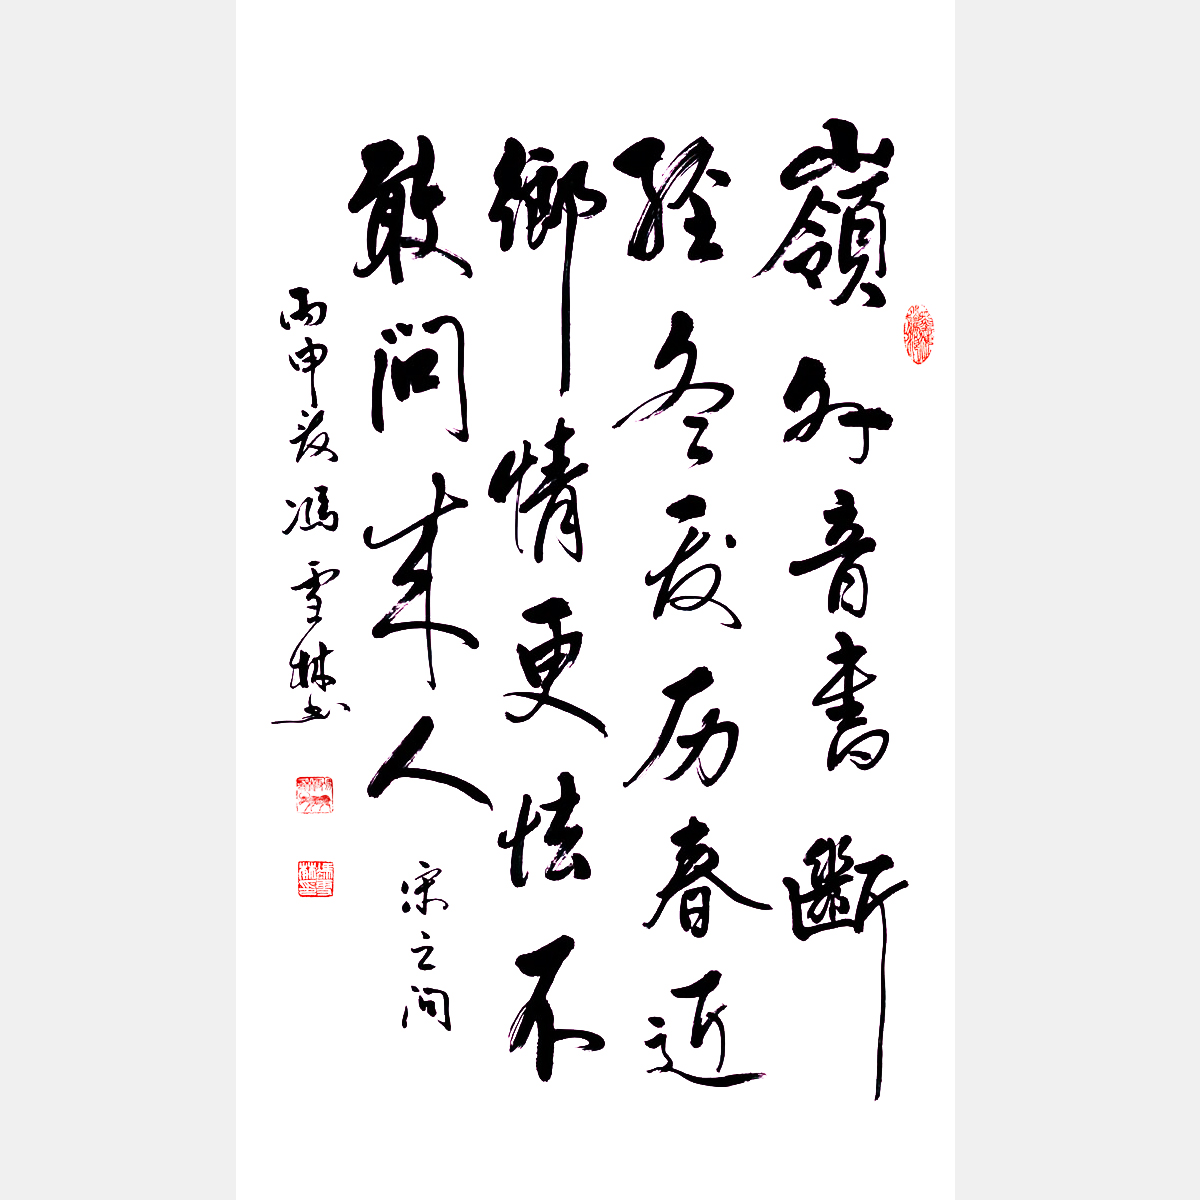 嶺外音書斷
經冬复历春近
鄉情更怯不
敢问来人 宋之问
丙申 馮雪林书